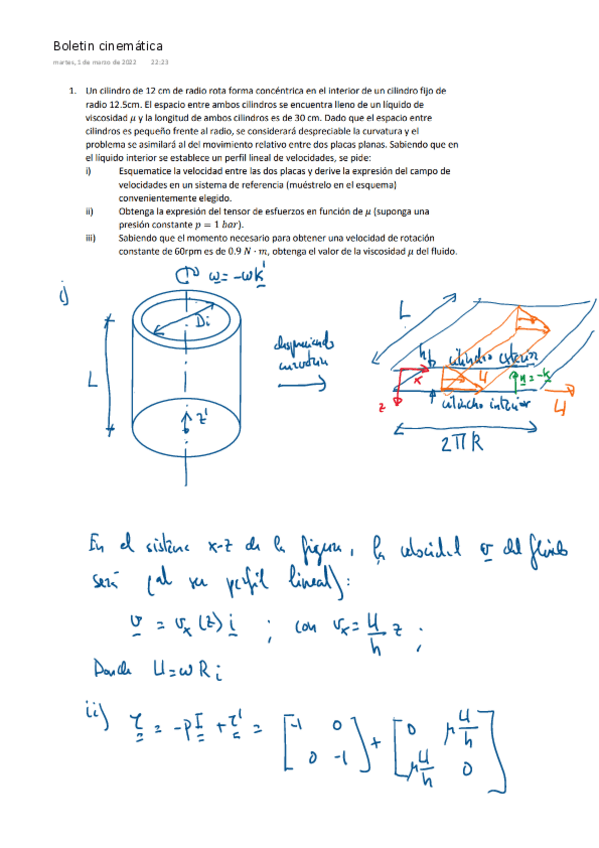 Boletin cinemática
martes, 1 de marzo de 2022 22:23
1. Un cilindro de 12 cm de radio rota forma concéntrica en el interior de un cilindro fijo de
radio 12.5cm. El espacio entre ambos cilindros se encuentra lleno de un líquido de
viscosidad μ y la longitud de ambos cilindros es de 30 cm. Dado que el espacio entre
cilindros es pequeño frente al radio, se considerará despreciable la curvatura y el
problema se asimilará al del movimiento relativo entre dos placas planas. Sabiendo que en
el líquido interior se establece un perfil lineal de velocidades, se pide:
i) Esquematice la velocidad entre las dos placas y derive la expresión del campo de
velocidades en un sistema de referencia (muéstrelo en el esquema)
convenientemente elegido.
ii) Obtenga la expresión del tensor de esfuerzos en función de μ (suponga una
presión constante p = 1 bar).
iii) Sabiendo que el momento necesario para obtener una velocidad de rotación
constante de 60rpm es de 0.9 N · m, obtenga el valor de la viscosidad μ del fluido.
i)
ω = -ωk'
Di
L
z'
despreciando
curvatura
L
h
cilindro exterior
x
U
n = -k
z
cilindro interior
U
2πR
En el sistema x-z de la figura, la velocidad v del fluido
será (al ser perfil lineal):
v = vx (z) i ; con vx = U/h z ;
Donde U = ωRi
ii) τ = -pI + τ' = [-1 0
0 -1] + [0 μ U/h
μ U/h 0]